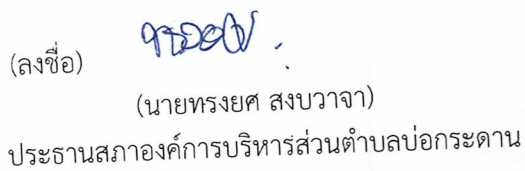 (ลงชื่อ)
(นายทรงยศ สงบวาจา)
ประธานสภาองค์การบริหารส่วนตำบลบ่อกระดาน